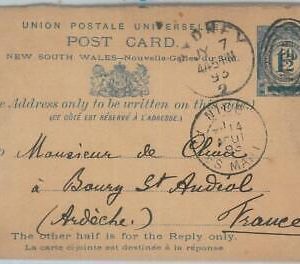 UNION POSTALE UNIVERSELLE
POST CARD.
NEW SOUTH WALES—Nouvelle-Galles du Sud.
SYDNEY
JY 7
93
2
1½
he Address only to be written on this
(CE CÔTÉ EST RÉSERVÉ À L'ADRESSE.)
14
Monsieur de
à Bourg St Andéol
(Ardèche.)
France
The other half is for the Reply only.
La carte ci-jointe est destinée à la réponse.